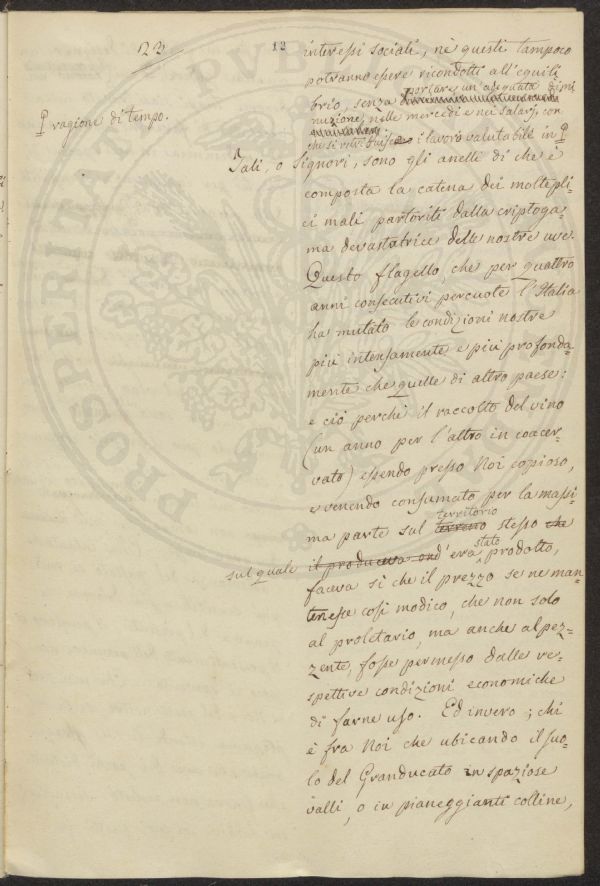 23
12
interessi sociali, nè questi tampoco
potranno essere ricondotti all'equili
brio, senza portare un'adequata dimi
nuzione, nelle mercedi e nei salarj, con
che si retribuisce i lavoro valutabile in P
P ragione di tempo.
Tali, o Signori, sono gli anelli di che è
composta la catena dei moltepli-
ci mali partoriti dalla criptoga-
ma devastatrice delle nostre uve.
Questo flagello, che per quattro
anni consecutivi percuote l'Italia
ha mutato le condizioni nostre
più intensamente e più profonda-
mente che quelle di altro paese:
e ciò perchè il raccolto del vino
(un anno per l'altro in coacer-
vato) essendo presso Noi copioso,
e venendo consumato per la massi
ma parte sul terreno territorio stesso che
sul quale il produceva ond'era stato prodotto,
faceva sì che il prezzo se ne man
tenesse così modico, che non solo
al proletario, ma anche al pez-
zente, fosse permesso dalle re-
spettive condizioni economiche
di farne uso. Ed invero; chi
è fra Noi che ubicando il suo-
lo del Granducato in spaziose
valli, o in pianeggianti colline,
PROSPERITATI PUBLI